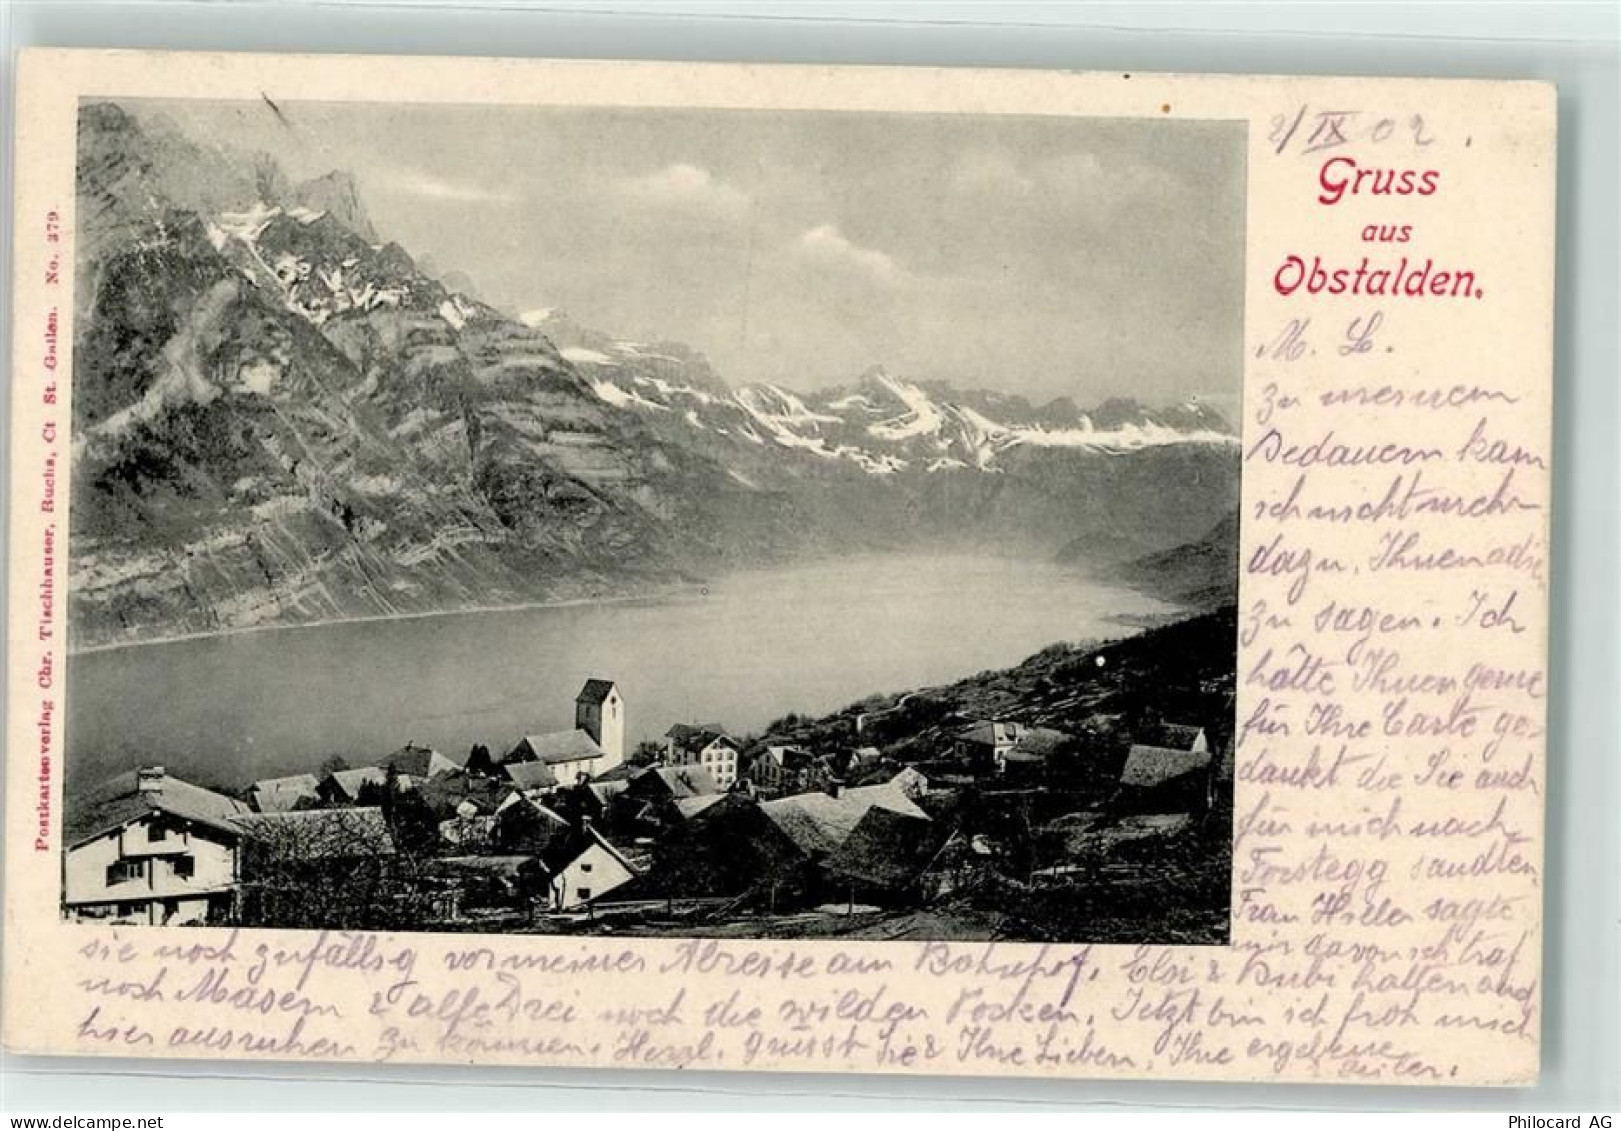 2/IX 02.
Gruss
aus
Obstalden.
M. L.
Zu meinem
Bedauern kam
ich nicht mehr
dazu, Ihnen adieu
zu sagen. Ich
hätte Ihnen gerne
für Ihre Carte ge-
dankt die Sie auch
für mich nach
Forstegg sandten.
Frau Hiller sagte
mir davon ich traf
sie noch zufällig vor meiner Abreise am Bahnhof. Elsi & Bubi hatten auch
noch Masern & alle Drei noch die wilden Pocken. Jetzt bin ich froh mich
hier ausruhen zu können. Herzl. grüsst Sie & Ihre Lieben, Ihre ergebene
Postkartenverlag Chr. Tischhauser, Buchs, Ct St. Gallen. No. 379.
Philocard AG